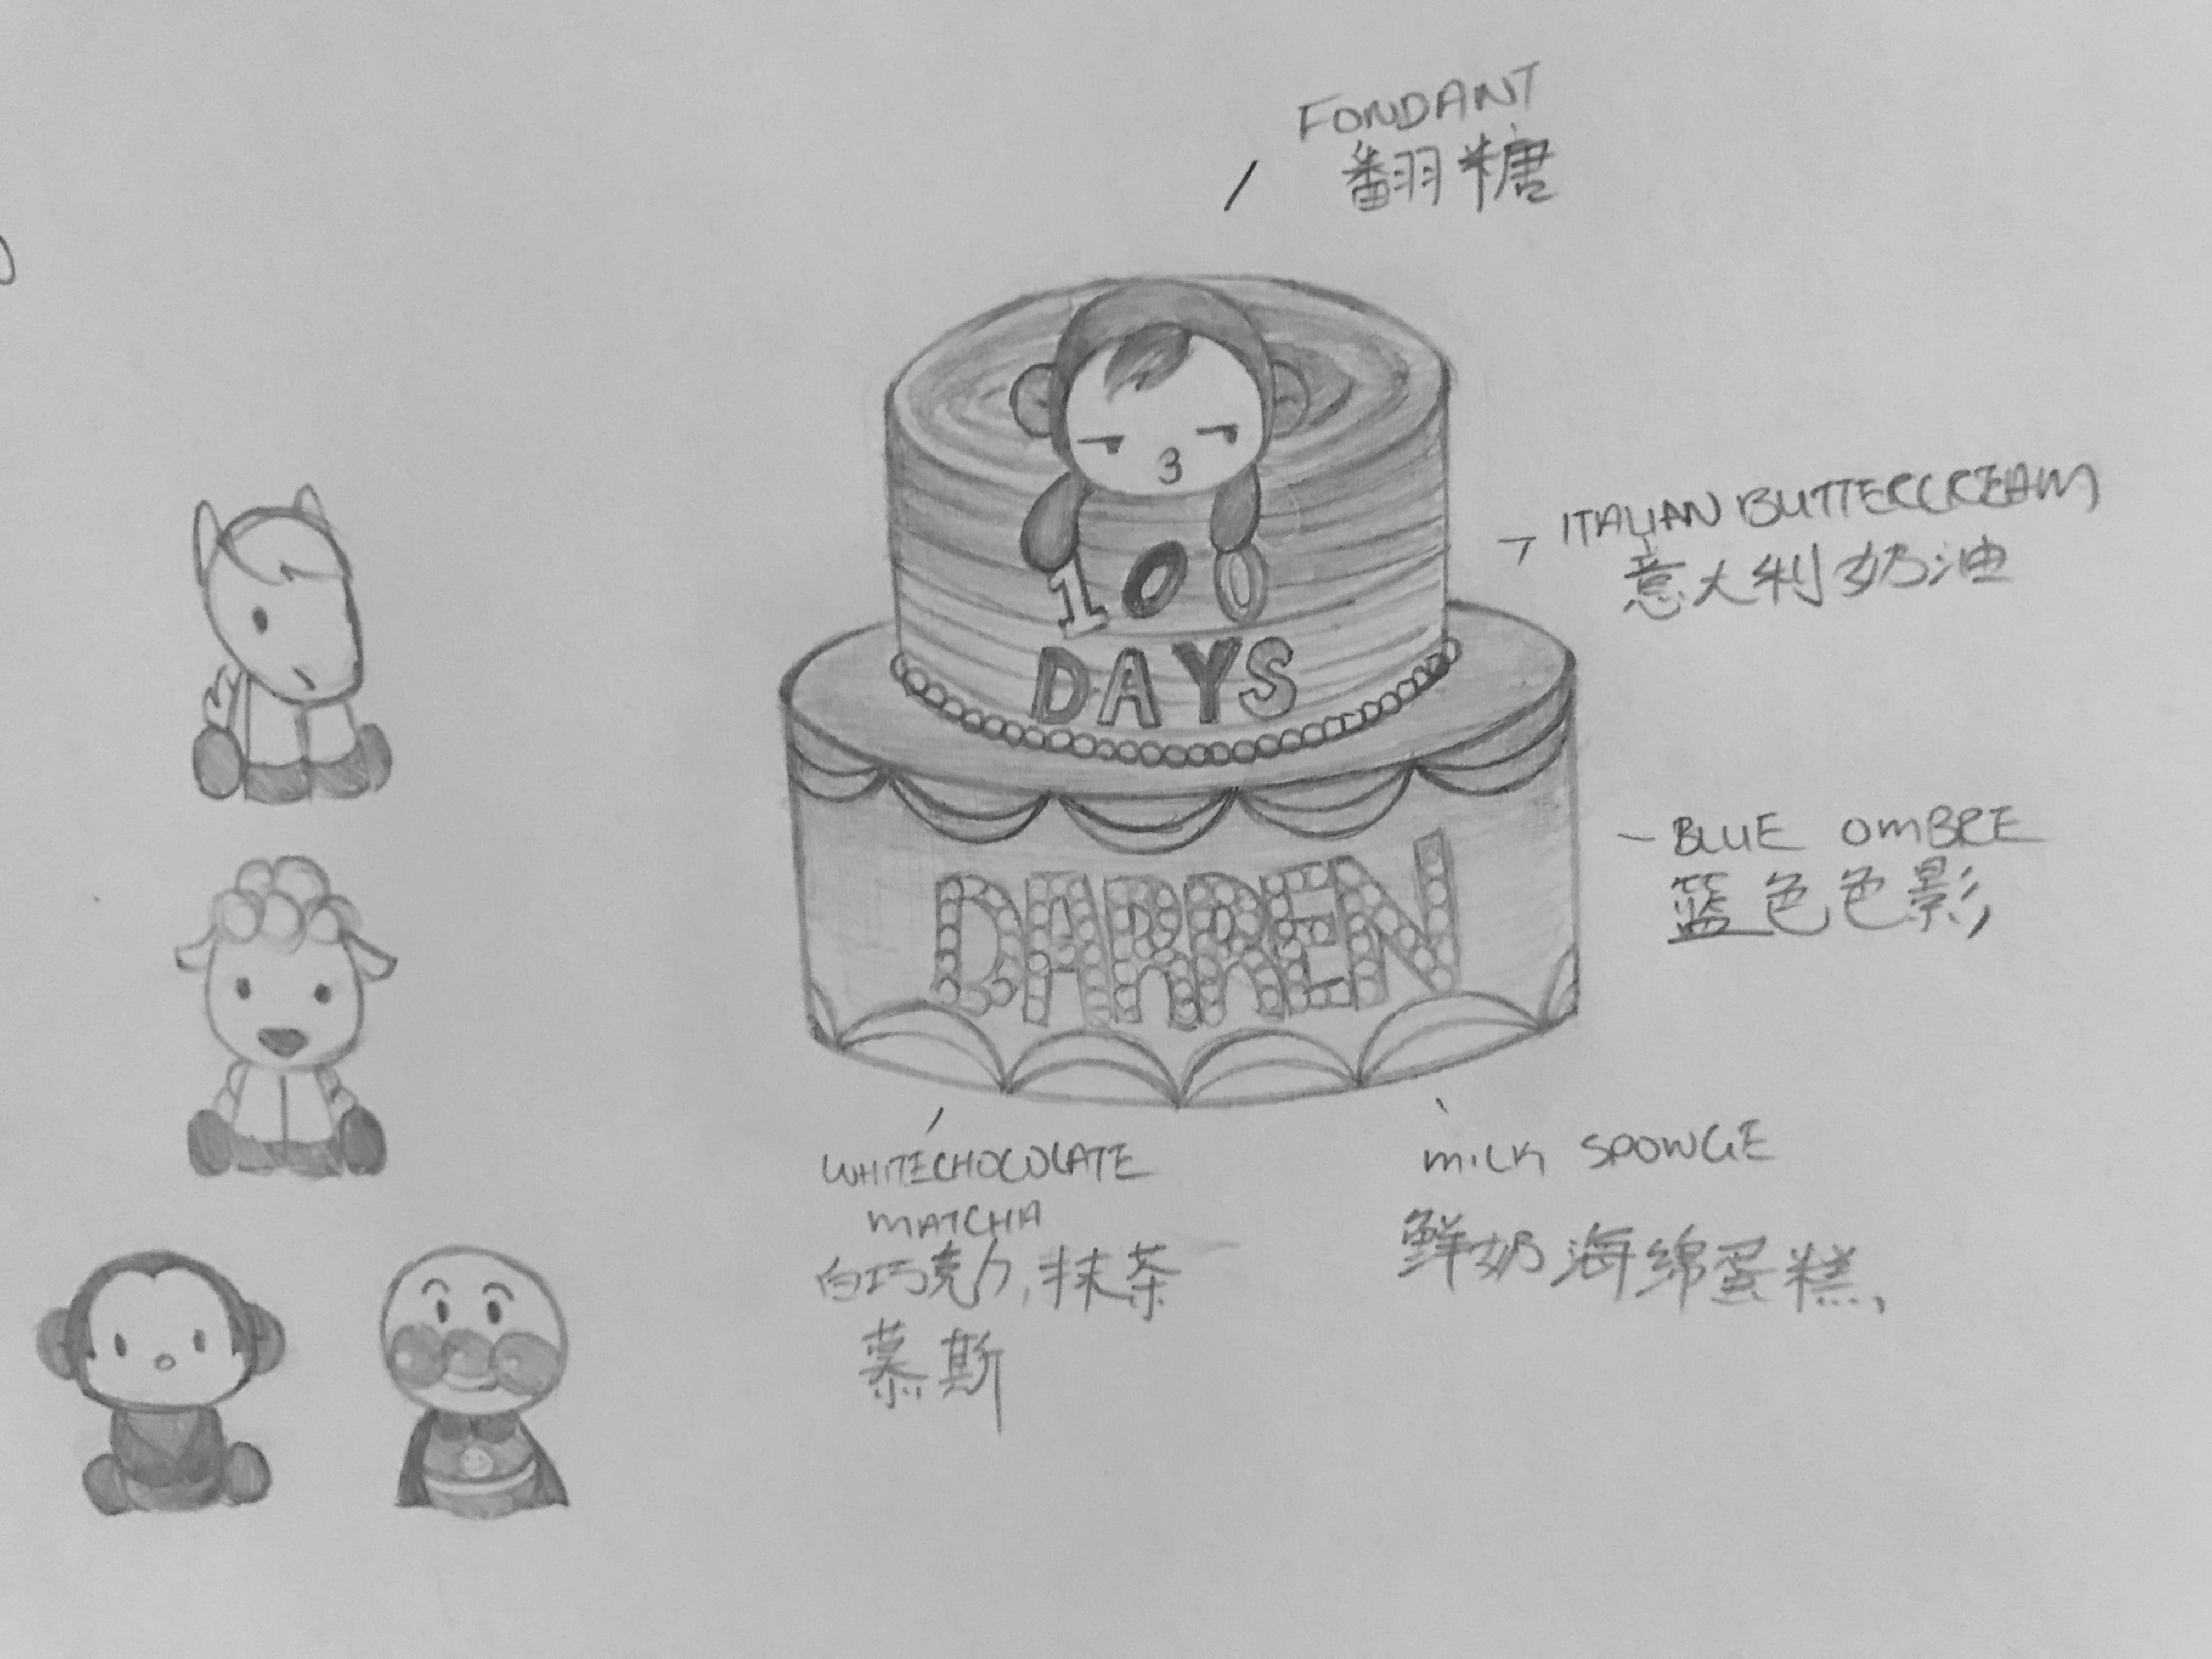 FONDANT
翻糖
ITALIAN BUTTERCREAM
意大利奶油
100
DAYS
BLUE OMBRE
蓝色色影
DARREN
WHITECHOCOLATE
MATCHA
白巧克力,抹茶
慕斯
MILK SPONGE
鲜奶海绵蛋糕,